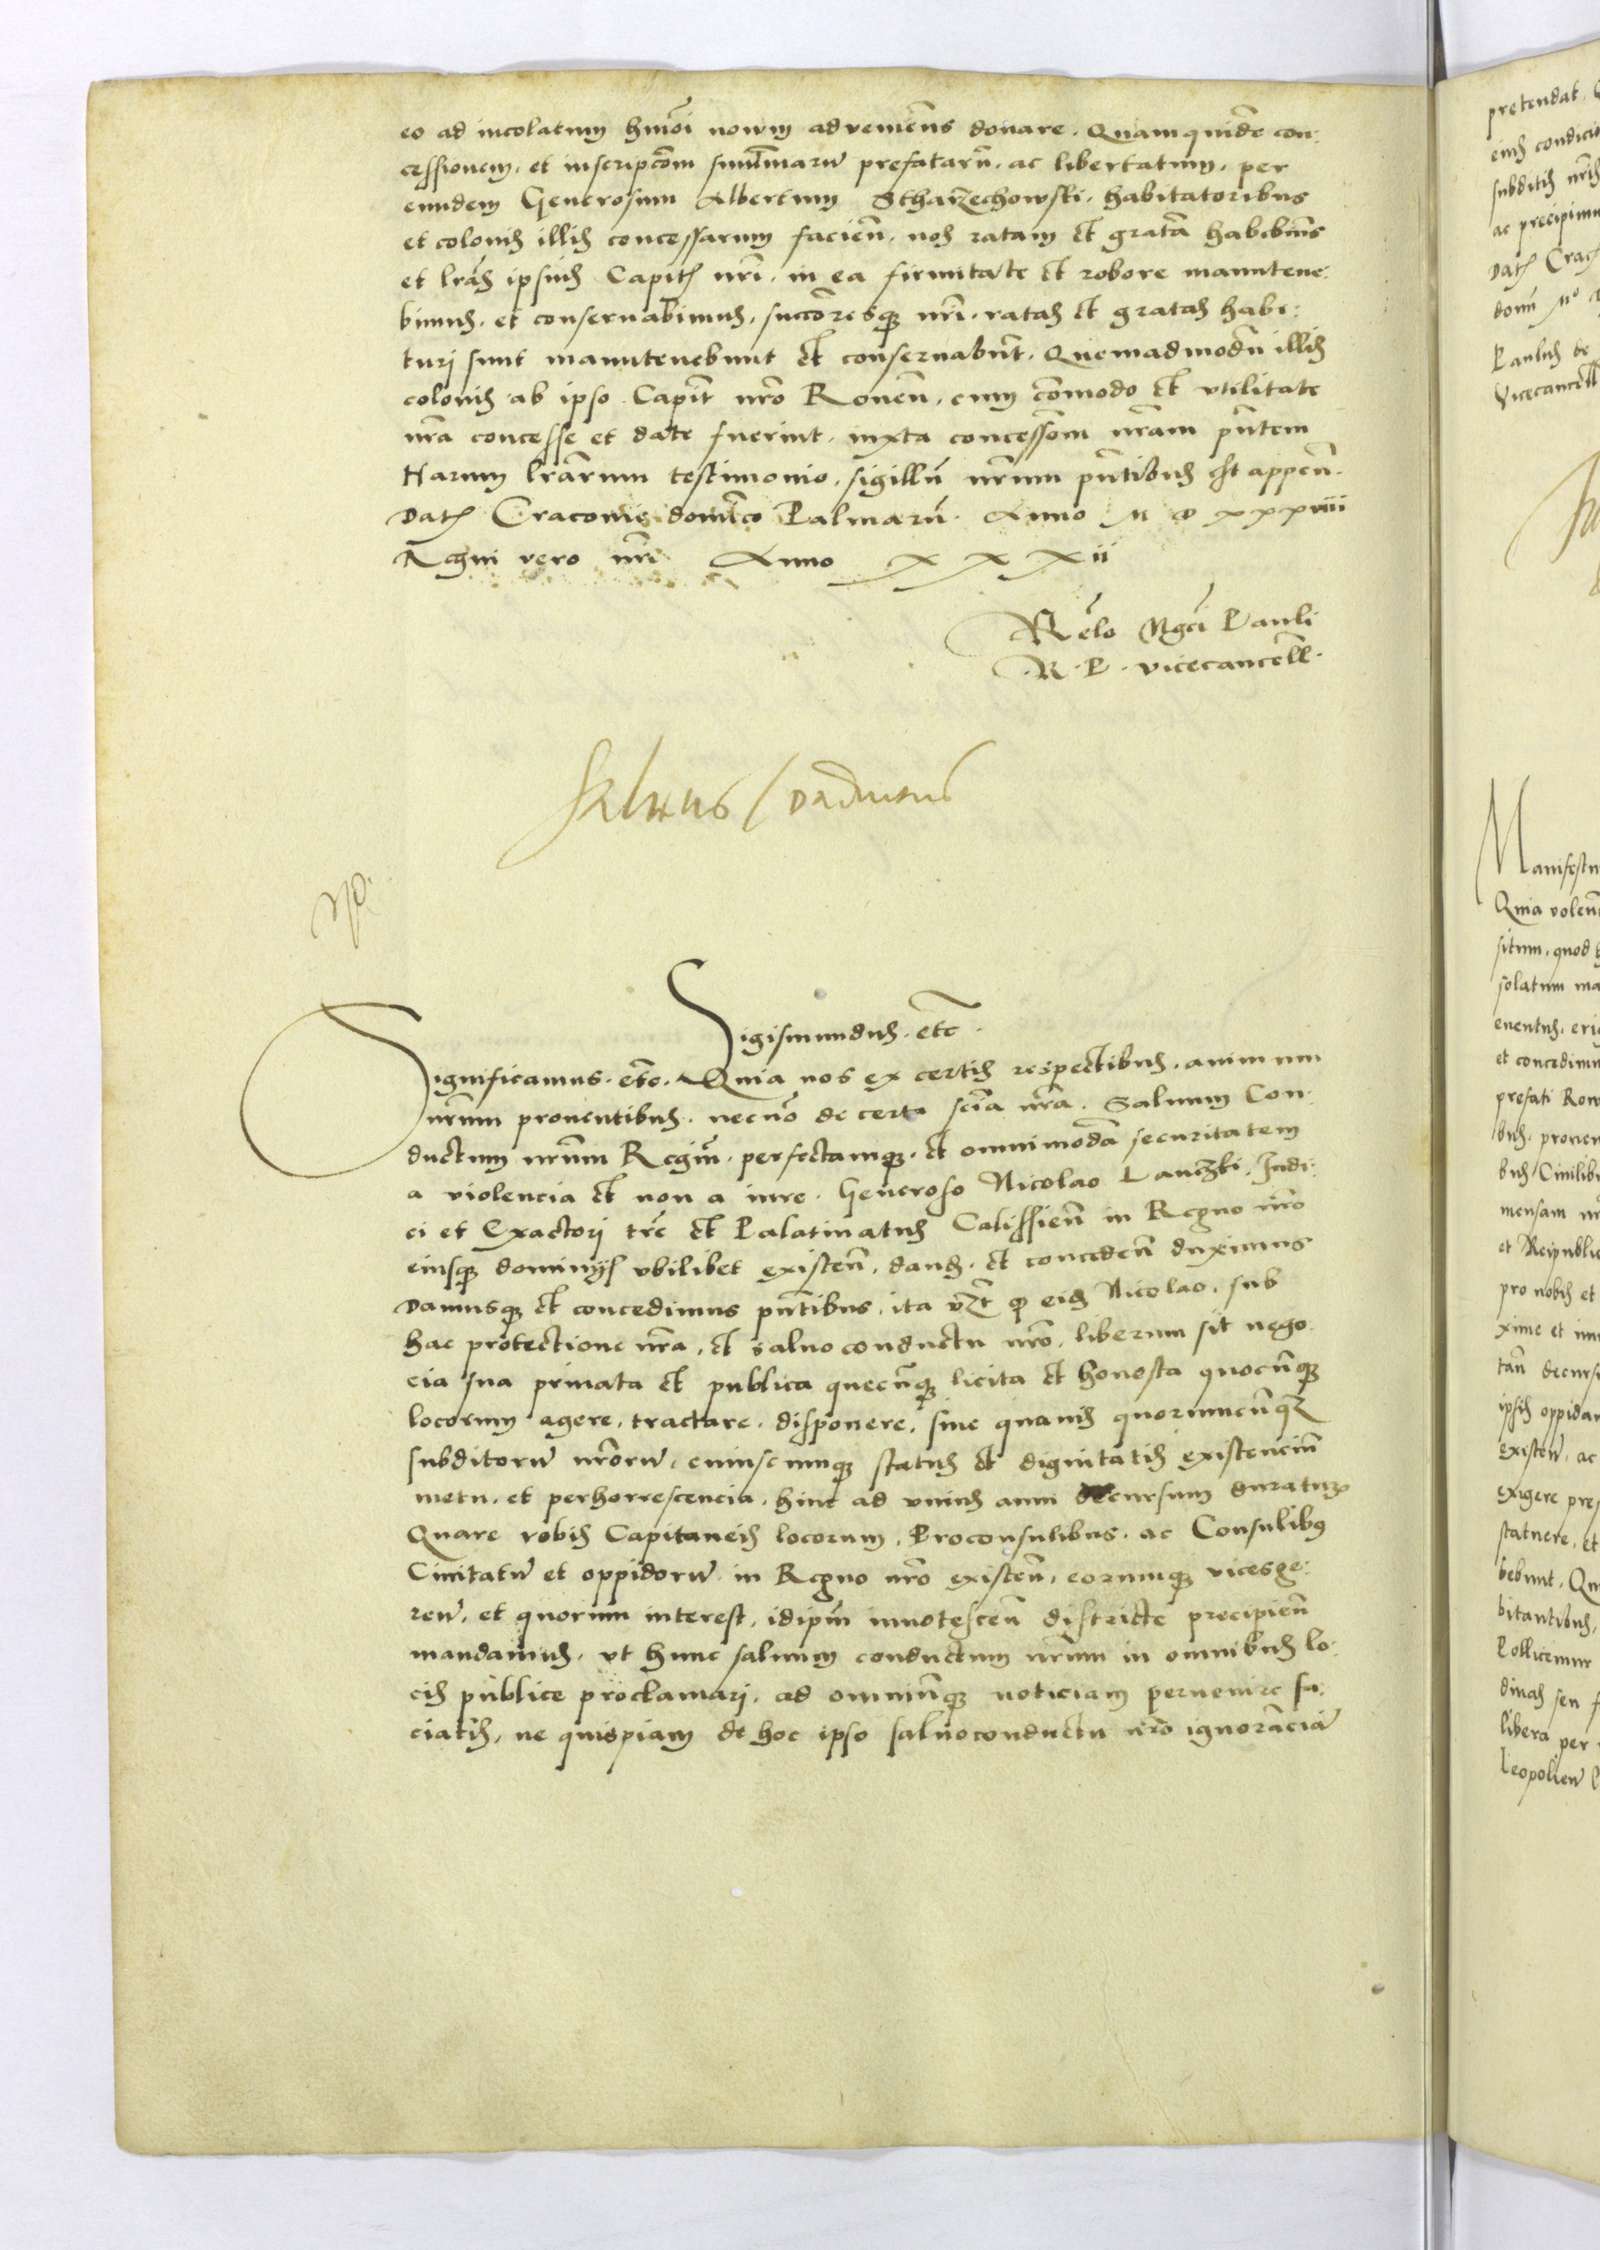 eo ad incolatum hmōi nowm advenien̄s donare. Quamquidē con:
cessionem. et inscripcōm sum̄marū prefatarū. ac libertatum. per
eundem Generosum Albertum Stharzechowski. habitatoribus
et colonis illis concessarum facien̄. nos ratam et gratā habebim̄s
et lrās ipsius Capitꝭ nrī. in ea firmitate et robore manutene:
bimus. et conservabimus, succōresqꝫ nrī. ratas et gratas habi:
turi sunt manutenebunt et conservabūt. Quemadmodū illis
colonis ab ipso Capit̄ nrō Rohen̄. cum cōmodo et utilitate
nrā concesse et date fuerint. iuxta concessiōm nrām pn̄tem
Harum lrārum testimonio. sigillū nrūm pn̄tibus est appen̄.
Datꝭ Cracovie domīco Palmarū. Anno M D xxxviii
Regni vero nrī Anno xxxii
Relō Mgcī Pauli
R. P. vicecancell.
Salvus Conductus
Sigismundus. etc.
Significamus. etc. Quia nos ex certis respectibus. animum
nrūm proventibus. necnō de certa sciā nrā. Salvum Con:
ductum nrūm Regiū. perfectamqꝫ. et omnimodā securitatem
a violencia et non a iure. Generoso Nicolao Lanczki. Iudi:
ci et Exactori trē et Palatinatus Calissien̄ in Regno nrō
eiusqꝫ dominijs ubilibet existen̄. dand. et conceden̄ duximus
Damusqꝫ et concedimus pn̄tibus. ita vzt̄ qꝫ eid Nicolao. sub
hac protectione nrā. et salvo conductu nrō. liberum sit nego:
cia sua privata et publica quecūqꝫ licita et honesta quocūqꝫ
locorum agere. tractare. disponere. sine quavis quorumcūqꝫ
subditorū nrōrū. cuiuscumqꝫ status et dignitatis existenciū
metu. et perhorrescencia. hinc ad unius anni decursum duraturꝫ
Quare vobis Capitaneis locorum. Proconsulibus. ac Consulibꝰ
Civitatū et oppidorū in Regno nrō existen̄. eorumqꝫ vicesge:
ren̄. et quorum interest. idipm̄ innotescen̄ districte precipien̄
mandamus. ut hunc salvum conductum nrūm in omnibus lo:
cis publice proclamari. ad omniūqꝫ noticiam pervenire fa:
ciatis. ne quispiam de hoc ipso salvoconductu nrō ignorāciā
pretendat.
eius condicio
subditis nrīs
ac precipimu
Datꝭ Crac
Paulus de
Vicecancell
Manifestu
Quia volen
situm. quod
solatum ma
eventus. eri
et concedimu
prefati Row
bus. proven
bus Civilib
mensam nr
et Reipublic
pro nobis et
xime et imm
tan̄ decurs
ipsis oppida
existen̄. ac
exigere pres
statuere. et
bebunt. Qu
bitantibus.
Pollicemur
dinas seu f
libera per
Leopolien̄